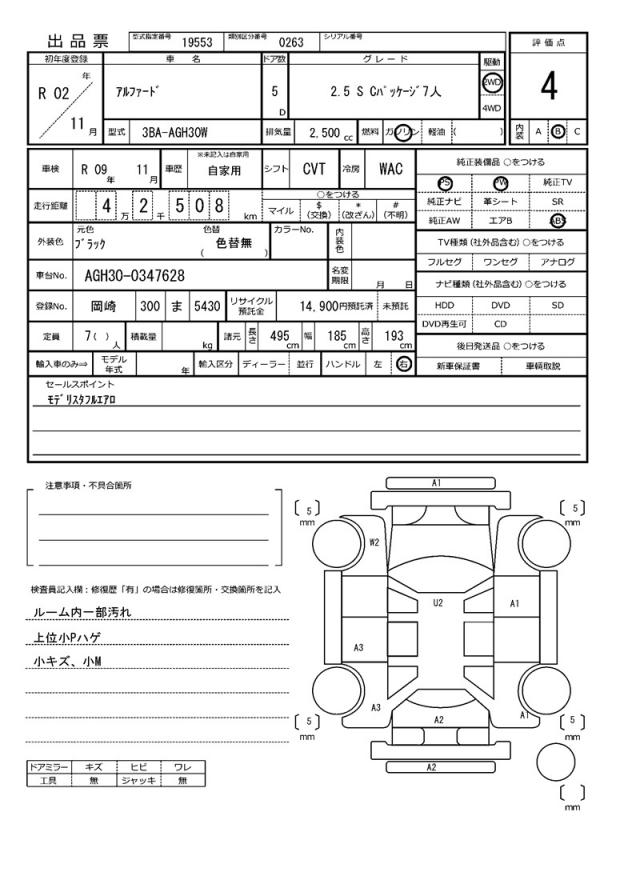 出品票 型式指定番号 19553 類別区分番号 0263 シリアル番号
初年度登録 車名 ドア数 グレード 駆動 評価点
R 02 年 11 月 ｱﾙﾌｧｰﾄﾞ 5 D 2.5 S Cﾊﾟｯｹｰｼﾞ7人 2WD 4WD 4
型式 3BA-AGH30W 排気量 2,500 cc 燃料 ガソリン 軽油 ( ) 内装 A B C
車検 R 09 年 11 月 車歴 ※未記入は自家用 自家用 シフト CVT 冷房 WAC 純正装備品 ○をつける
PS PW 純正TV
走行距離 4 万 2 千 5 0 8 km ○をつける 純正ナビ 革シート SR
マイル $ (交換) * (改ざん) # (不明) 純正AW エアB ABS
外装色 元色 ﾌﾞﾗｯｸ 色替 ( 色替無 ) カラーNo. 内装色 TV種類 (社外品含む) ○をつける
フルセグ ワンセグ アナログ
車台No. AGH30-0347628 名変期限 月 日 ナビ種類 (社外品含む) ○をつける
登録No. 岡崎 300 ま 5430 リサイクル預託金 14,900円預託済 未預託 HDD DVD SD
DVD再生可 CD
定員 7( ) 人 積載量 kg 諸元 長さ 495 cm 幅 185 cm 高さ 193 cm 後日発送品 ○をつける
輸入車のみ⇒ モデル年式 年 輸入区分 ディーラー 並行 ハンドル 左 右 新車保証書 車輌取説
セールスポイント
ﾓﾃﾞﾘｽﾀﾌﾙｴｱﾛ
注意事項・不具合箇所
検査員記入欄：修復歴「有」の場合は修復箇所・交換箇所を記入
ルーム内一部汚れ
上位小Pハゲ
小キズ、小M
ドアミラー キズ ヒビ ワレ
工具 無 ジャッキ 無
A1
[ 5 ] mm [ 5 ] mm
W2
U2 A1
A3
A3 A2 A1
[ 5 ] mm [ 5 ] mm
A2
[ ] mm